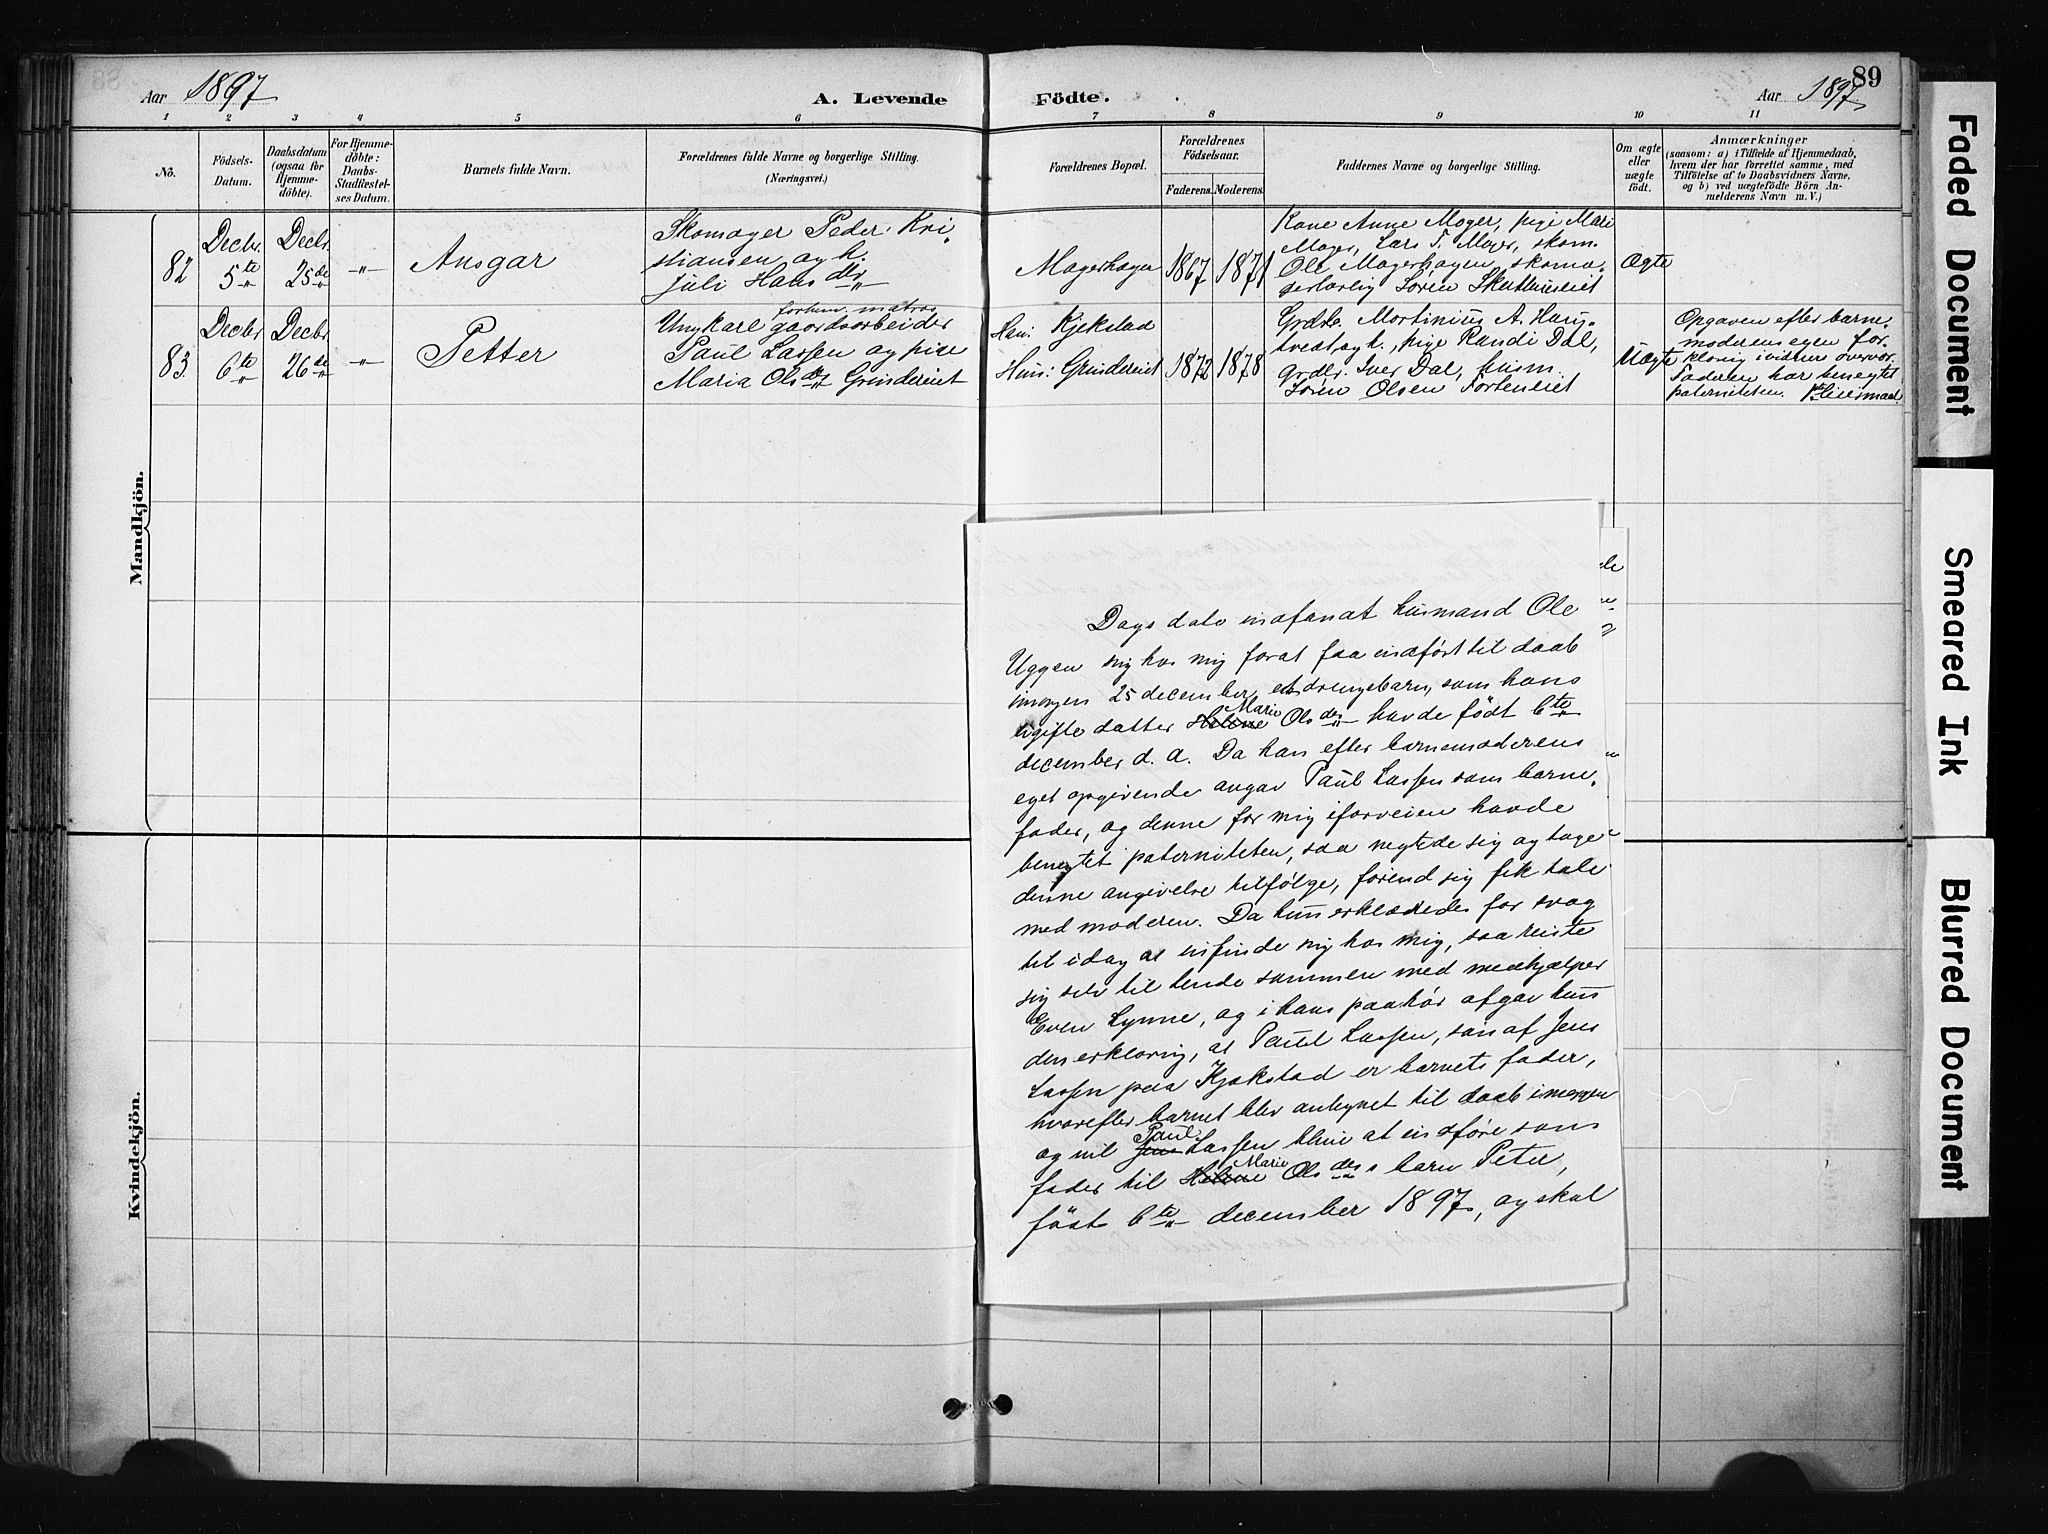 89
Aar 1897
A. Levende
Födte.
Aar 1897
1 2 3 4 5 6 7 8 9 10 11
No.
Födsels-
Datum.
Daabsdatum
(ogsaa for
Hjemme-
döbte).
For Hjemme-
döbte:
Daabs-
Stadfæstel-
ses Datum.
Barnets fulde Navn.
Forældrenes fulde Navne og borgerlige Stilling.
(Næringsvei.)
Forældrenes Bopæl.
Forældrenes
Födselsaar.
Faderens. Moderens.
Faddernes Navne og borgerlige Stilling.
Om ægte
eller
uægte
födt.
Anmærkninger
(saasom: a) i Tilfælde af Hjemmedaab,
hvem der har forrettet samme, med
Tilföielse af to Daabsvidners Navne,
og b) ved uægtefödte Börn An-
melderens Navn m. V.)
Mandkjön.
82
Decbr.
5te
Decbr.
25de
-"-
Ansgar
Skomager Peder Kri-
stiansen og h.
Juli Hansdtr
Magerhagen
1867
1871
Kone Anne Moger, pige Mari
Moger, Lars T. Moger, skom.
Ole Magerhagen, skoma-
gerlærling Sören
Ægte
83.
Decbr
6te
Decbr
26de
-"-
Petter
forhen. matros
Ungkarl gaardsarbeider
Paul Lassen og pige
Maria Olsdtr Grindereiet
Han: Kjekstad
Hun: Grindereiet
1872
1878
Grdbr. Martinius A. Haug-
tvedt og h., pige Randi Dal,
grdbr. Iver Dal, husm.
Sören Olsen Forteneiet
Uægte
Opgaven efter barne-
moderens egen for-
klaring i vidners overvær.
Faderen har benegtet
paterniteten. 1ste leiermaal.
Dags dato indfandt husmand Ole
Uggen sig hos mig forat faa indført til daab
imorgen 25 december, et drengebarn, som hans
ugifte datter Helene Marie Olsdtr havde født 6te
december d. a. Da han efter barnemoderens
eget opgivende angav Paul Lassen som barne-
fader, og denne for mig iforveien havde
benegtet paterniteten, saa negtede jeg at tage
denne angivelse tilfølge, førend jeg fik tale
med moderen. Da hun erklæredes for svag
til idag at indfinde sig hos mig, saa reiste
jeg selv til hende sammen med medhjælper
Even Lynne, og i hans paahør afgav hun
den erklæring, at Paul Lassen, søn af Jens
Lassen paa Kjekstad er barnets fader,
hvorefter barnet blev antegnet til daab imorgen
og vil Jens Paul Lassen blive at indføre som
fader til Helene Marie Olsdtrs barn Peter,
født 6te december 1897, og skal
Kvindekjön.
Faded Document
Smeared Ink
Blurred Document